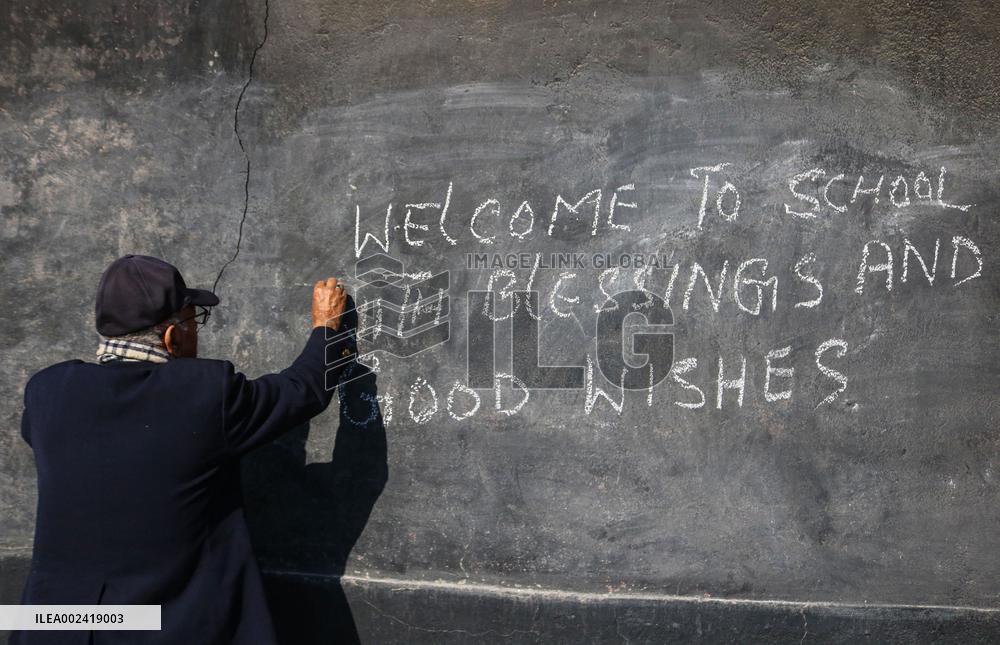 WELCOME TO SCHOOL
WITH BLESSINGS AND
GOOD WISHES.
IMAGE LINK GLOBAL
ILG
ILEA002419003